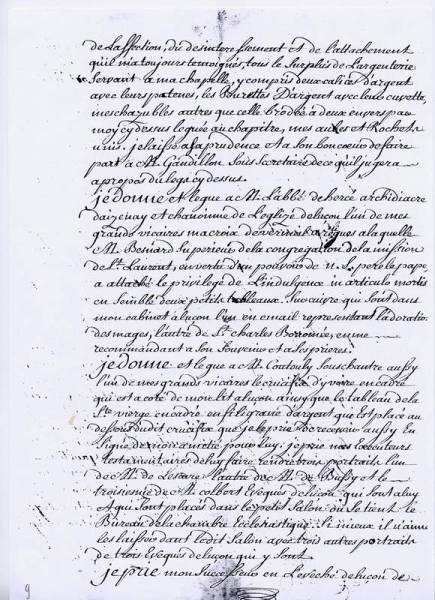 de l'affection, du desinteressement et de l'attachement
qu'il m'a toujours temoignés, tous le Surplus de l'argenterie
Servant a ma chapelle, y compris deux calices d'argent
avec leurs patenes, les Burettes D'argent avec leur cuvette,
mes chazubles autres que celle brodée a deux envers par
moy cy dessus leguée au chapitre, mes aubes et Rochets
unis. je laisse a la prudence et a son bon coeur de faire
part a M. Gandillon Sous Secretaire de ce qu'il jugera
a propos du legs cy dessus.
je donne et legue a M. L'abbé de hercé archidiacre
d'aizenay et chanoinne de l'eglize de luçon l'un de mes
grands vicaires ma croix d'or a laquelle
M. Besnard Superieur de la congregation de la mission
de St. Laurent, en vertu d'un pouvoir de n. S. pere le pape,
a attaché le privilege de L'indulgence in articulo mortis
en Semble deux petits tableaux Sur cuivre qui Sont dans
mon cabinet a luçon l'un en email representant l'adoration
des mages, l'autre de St. charles Borromée, en me
recommandant a Son Souvenir et a Ses prieres.
je donne et legue a M. Coutouly Souschantre aussy
l'un de mes grands vicaires le crucifix d'yvoire encadré
qui est a coté de mon lit a luçon ainsy que le tableau de la
Ste vierge encadré en filigrane d'argent qui Est placé au
dessous dudit crucifix que je le prie de recevoir aussy En
Signe de mon amitié pour luy. je prie nos Executeurs
testamentaires de luy faire rendre trois portraits l'un
de M. de Lescure l'autre de M. de Bussy et le
troisiesme de M. colbert Evêques de luçon qui Sont a luy
Et qui Sont placés dans le petit Salon où Se tient le
Bureau de la chambre Ecclesiastique. Si mieux il n'aime
les laisser dans ledit Salon avec trois autres portraits
de trois Evêques de luçon qui y Sont.
je prie mon Successeur en L'evêché de luçon de
9